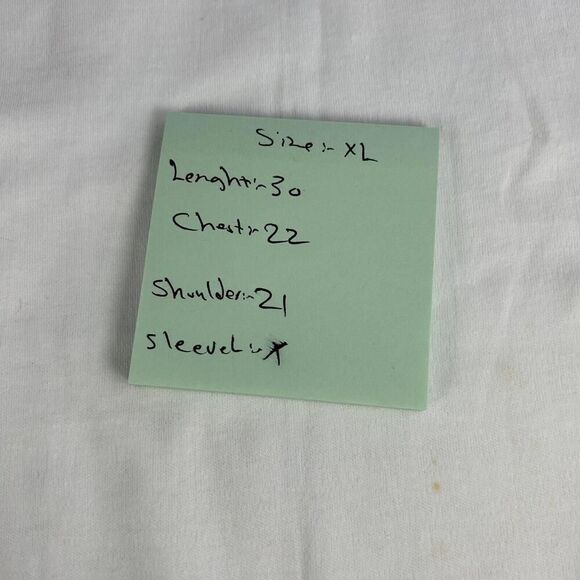 Size :- XL
Lenght :- 30
Chest :- 22
Shoulder :- 21
Sleevel :- X